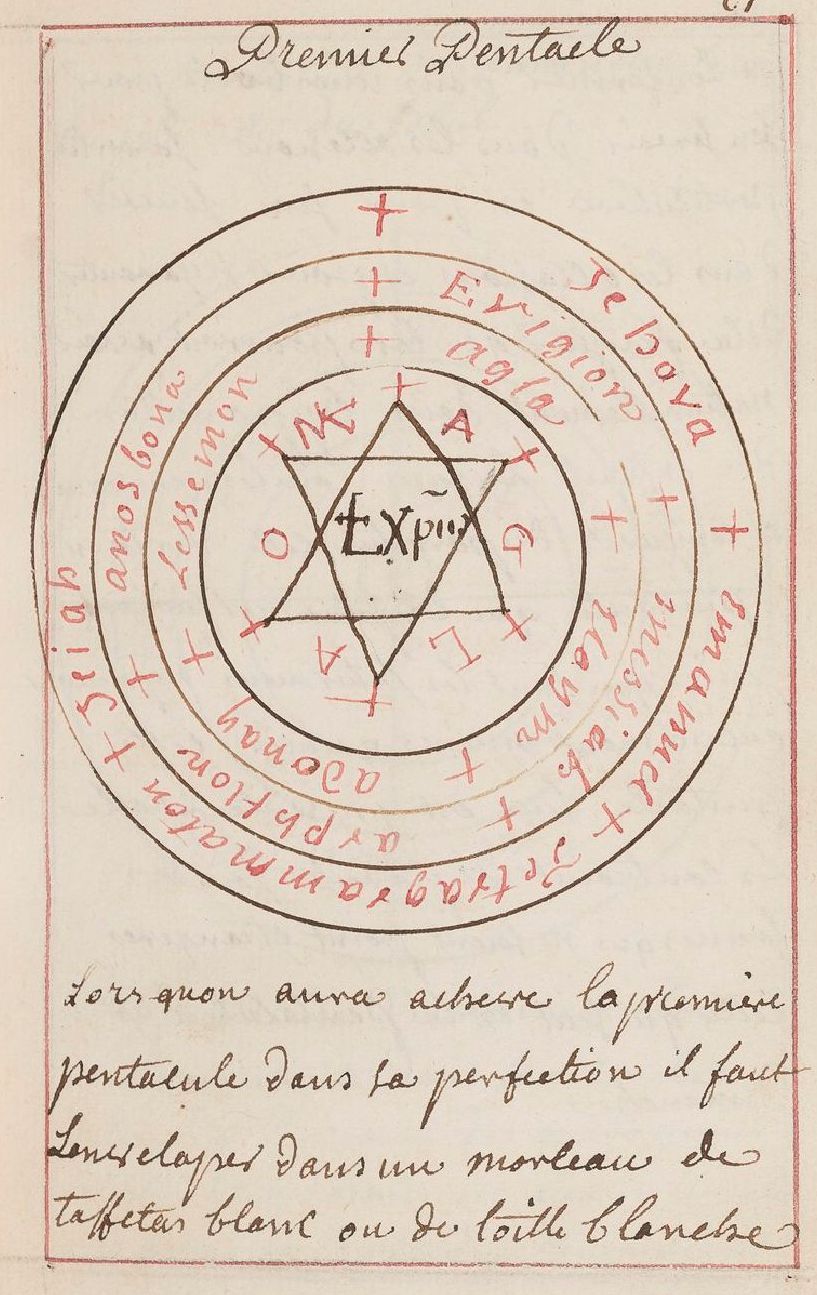 Premier Pentacle
+ Jehova + Emanuel + Tetragrammaton + Jeiah
+ Erigion + messiah + arphtion + anosbona
+ agla + Eloym + adonay + Lessemon
+ A + G + L + A + O +
Lorsquon aura acheve la premiere
pentacule dans sa perfection il faut
Lenveloper dans un morceau de
taffetas blanc ou de toille blanche